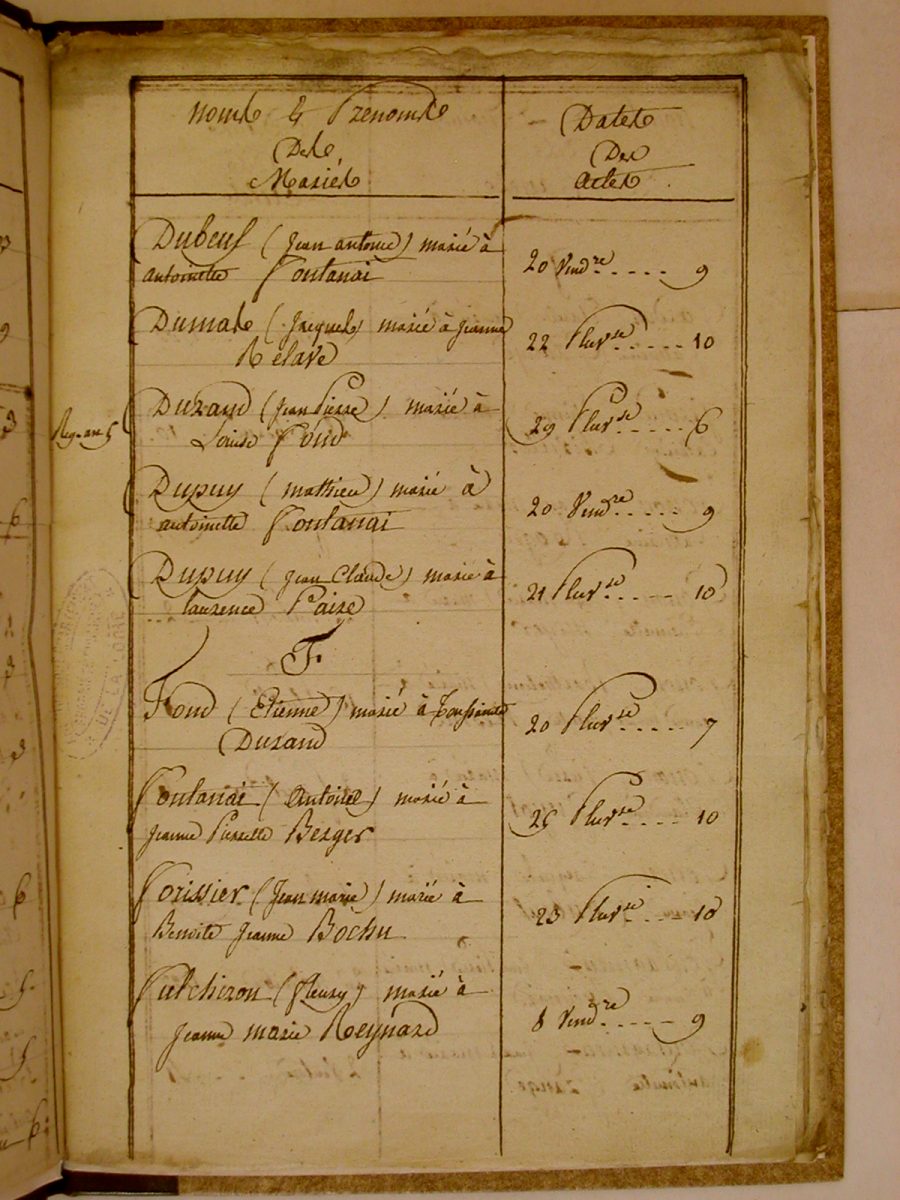 Noms & Prénoms
Des
Mariés
Dates
Des
Actes
Dubeuf (Jean antoine) marié à
antoinette Fontanai
20 Vendre ..... 9
Dumas (Jacques) marié à Jeanne
Relave
22 Pluvse ..... 10
Durand (Jean Pierre) marié à
Louise Fond
29 Pluvse ..... 6
Dupuy (mathieu) marié à
antoinette Fontanai
20 Vendre ..... 9
Dupuy (Jean Claude) marié à
laurence Paire
21 Pluvse ..... 10
F.
Fond (Etienne) marié à
Durand
20 Pluvse ..... 7
Fontanai (Antoine) marié à
Jeanne Pierrette Berger
Pluvse ..... 10
Forissier (Jean marie) marié à
Benoite Jeanne Bochu
23 Pluvse ..... 10
Fulchiron (fleury) marié à
Jeanne marie Reynard
8 Vendre ..... 9
DE LA LOIRE